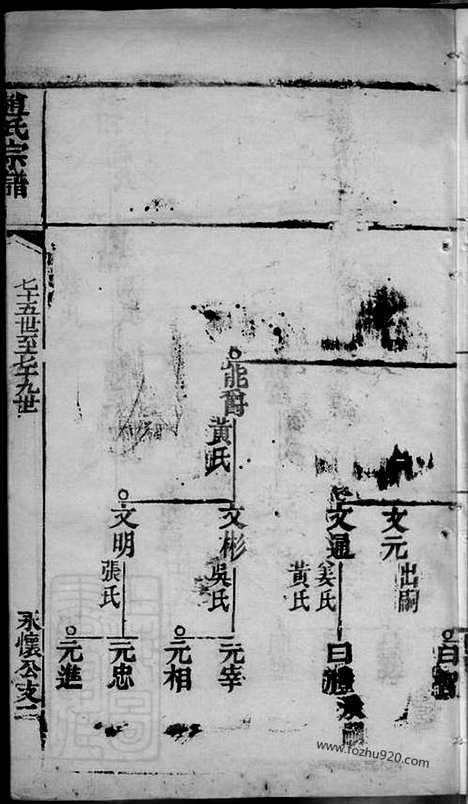 文元
出嗣
文通
姜氏
黃氏
能爵
黃氏
文彬
吳氏
元宰
元相
文明
張氏
元忠
元進
氏宗譜
七十五世至七十九世
永懷公支二
www.fozhu920.com